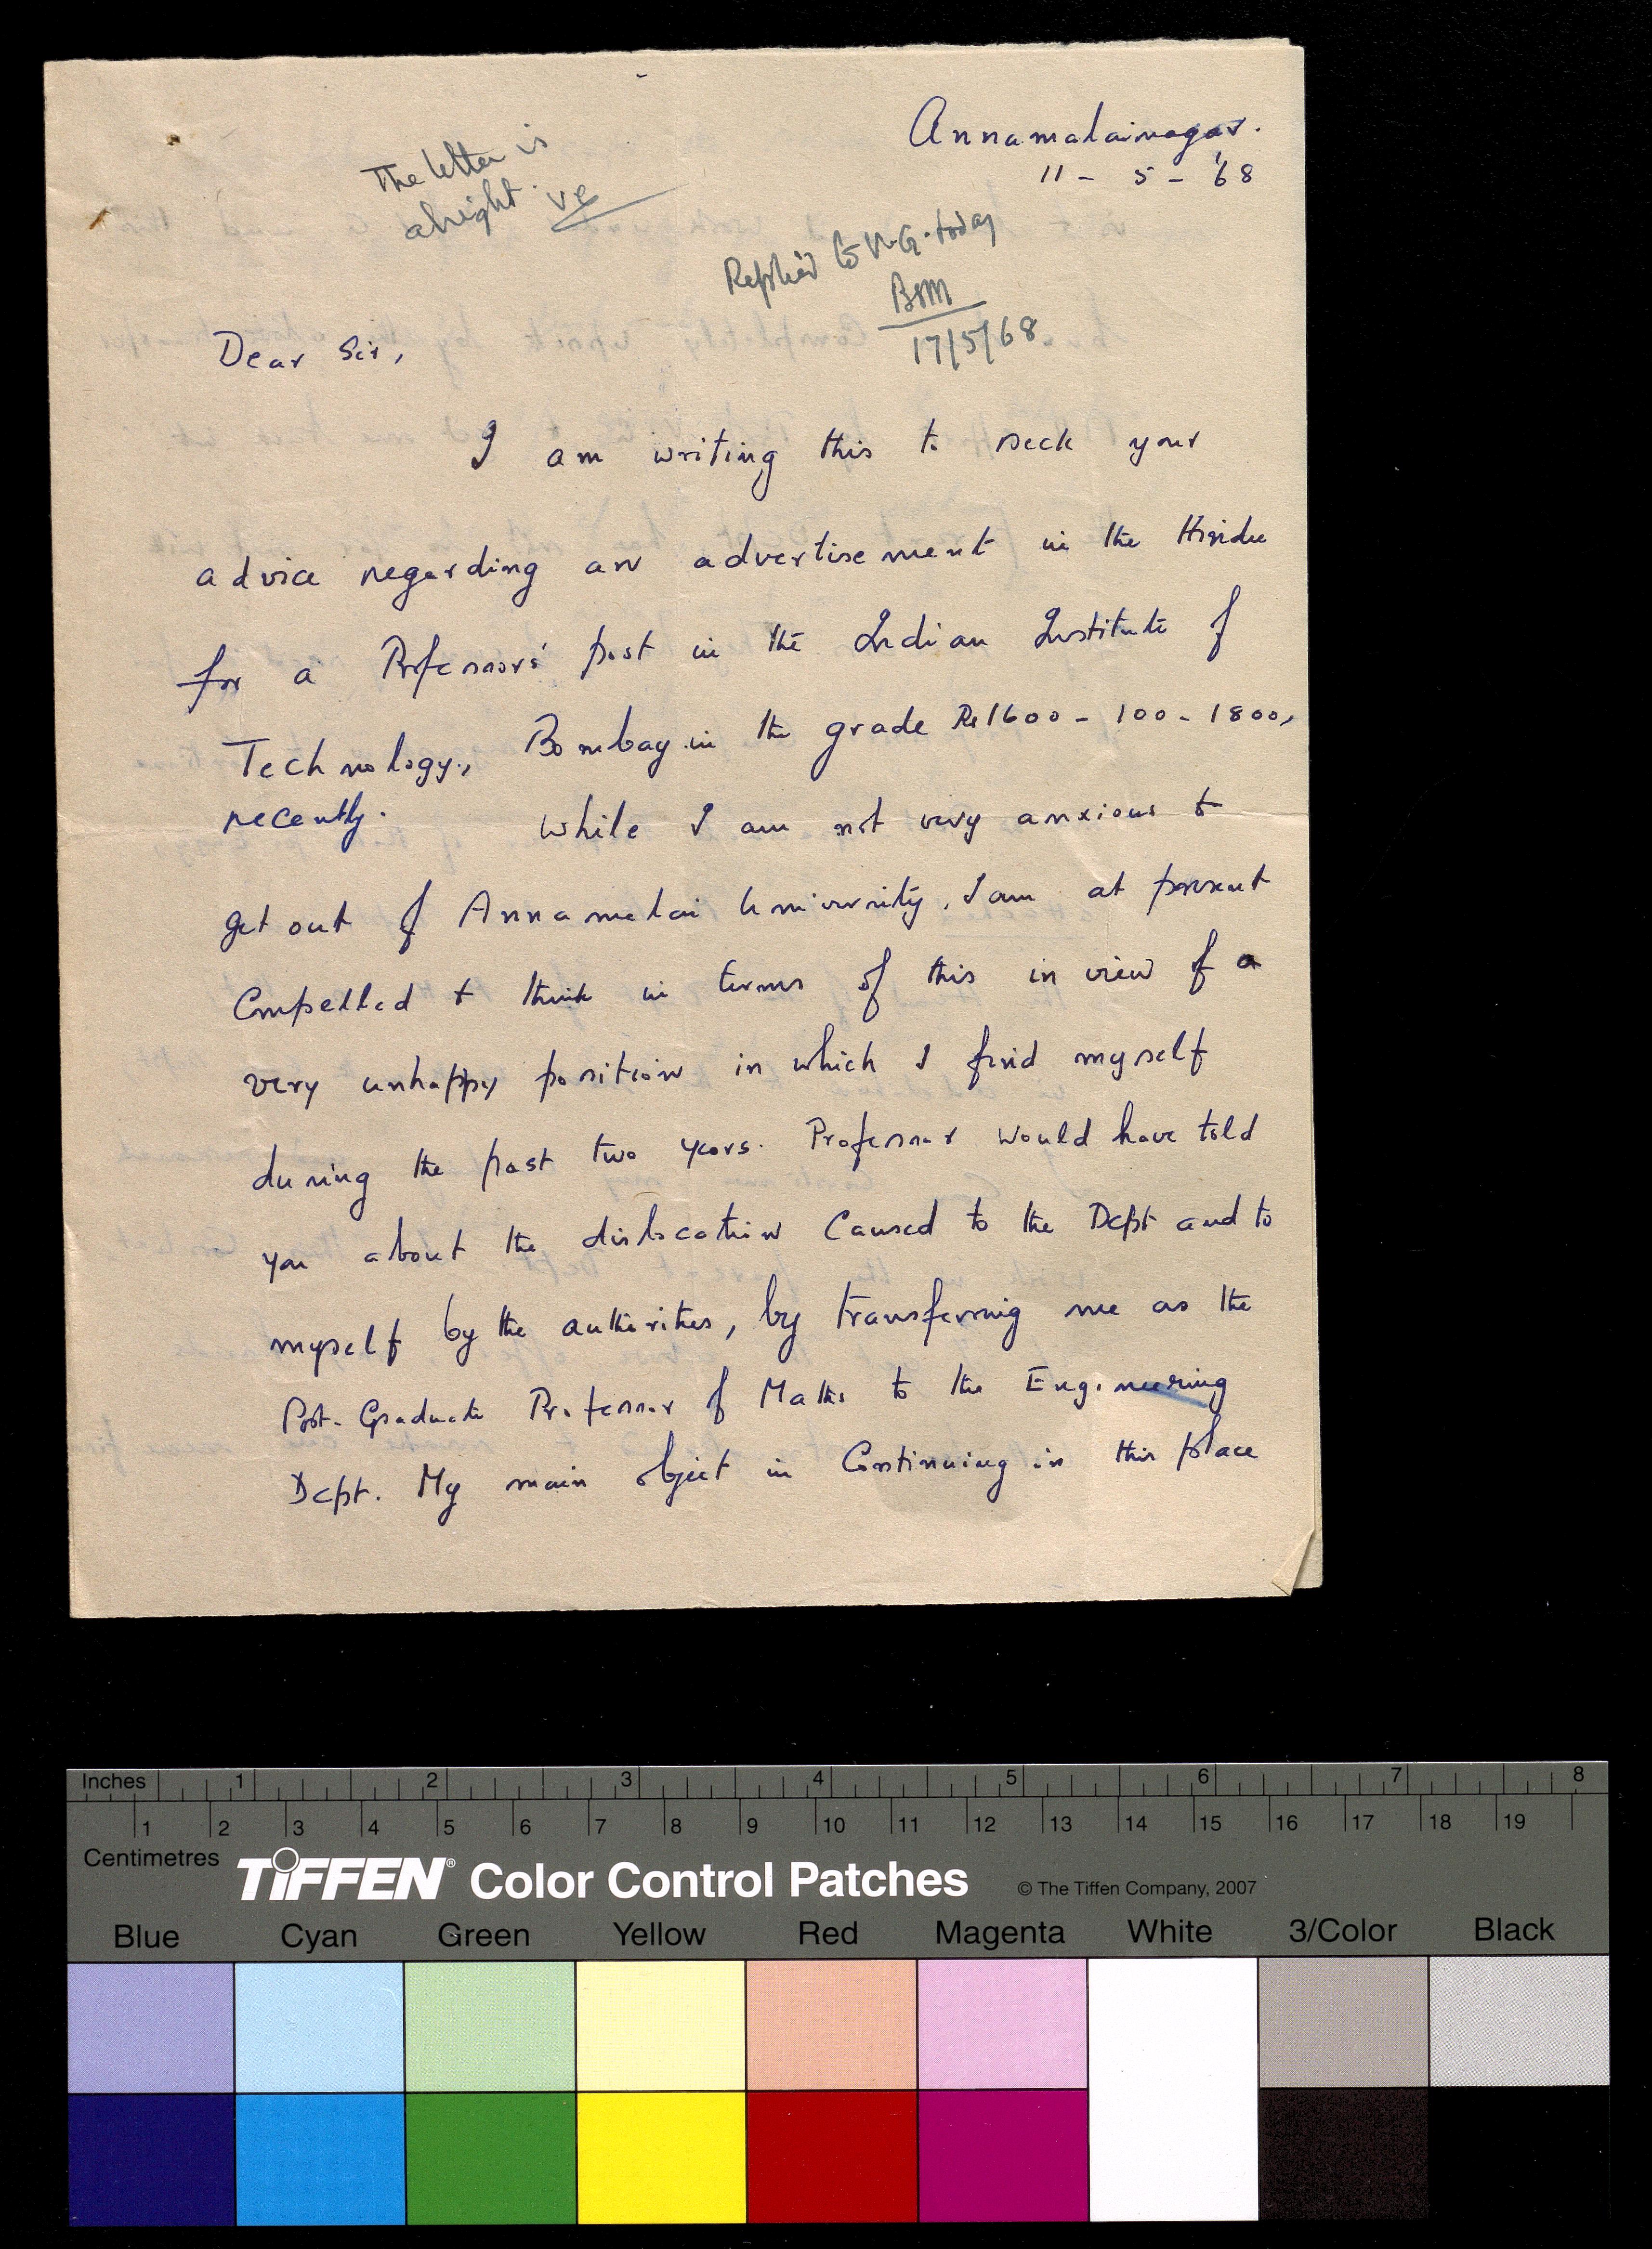 Annamalainagar.
11 - 5 - '68
The letter is
alright. VG
Replied to V.G. today
BSM
17/5/68
Dear Sir,
I am writing this to seek your
advice regarding an advertisement in the Hindu
for a Professors' post in the Indian Institute of
Technology, Bombay in the grade Rs 1600 - 100 - 1800,
recently. While I am not very anxious to
get out of Annamalai University, I am at present
Compelled to think in terms of this in view of a
very unhappy position in which I find myself
during the past two years. Professor would have told
you about the dislocation Caused to the Dept and to
myself by the authorities, by transferring me as the
Post-Graduate Professor of Maths to the Engineering
Dept. My main object in Continuing in this place
Inches 1 2 3 4 5 6 7 8
1 2 3 4 5 6 7 8 9 10 11 12 13 14 15 16 17 18 19
Centimetres
TIFFEN® Color Control Patches © The Tiffen Company, 2007
Blue Cyan Green Yellow Red Magenta White 3/Color Black